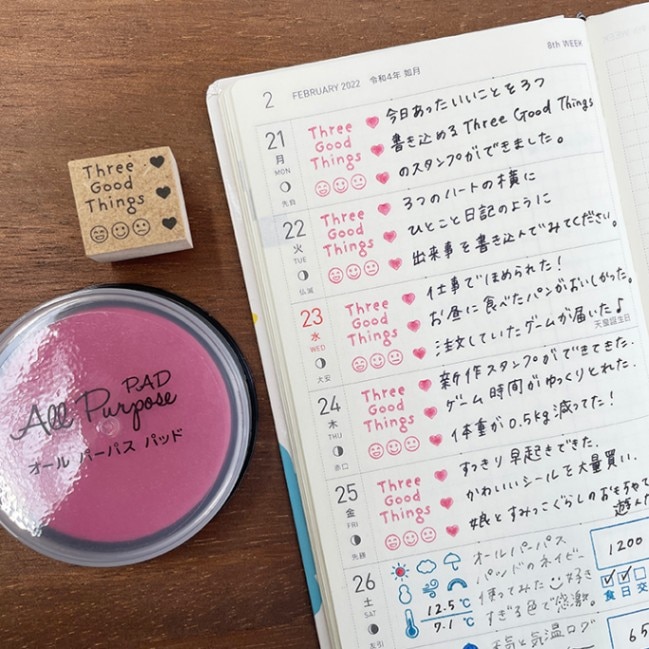 Three
Good
Things
PAD
All Purpose
オール パーパス パッド
2 FEBRUARY 2022 令和4年 如月
8th WEEK
21
月
MON
先負
Three
Good
Things
今日あったいいことを3つ
書き込めるThree Good Things
のスタンプができました。
22
火
TUE
仏滅
Three
Good
Things
3つのハートの横に
ひとこと日記のように
出来事を書き込んでみてください。
23
水
WED
大安
Three
Good
Things
仕事でほめられた!
お昼に食べたパンがおいしかった。
注文していたゲームが届いた♪
天皇誕生日
24
木
THU
赤口
Three
Good
Things
新作スタンプができてきた.
ゲーム時間がゆっくりとれた.
体重が0.5kg減ってた!
25
金
FRI
先勝
Three
Good
Things
すっきり早起きできた.
かわいいシールを大量買い.
娘とすみっこぐらしのおもちゃで
遊んだ
26
土
SAT
友引
12.5℃
7.1℃
オールパーパス
パッドのネイビー
使ってみた 好き
すぎる色で感激。
1200
食 日 交
天気と気温ログ
65